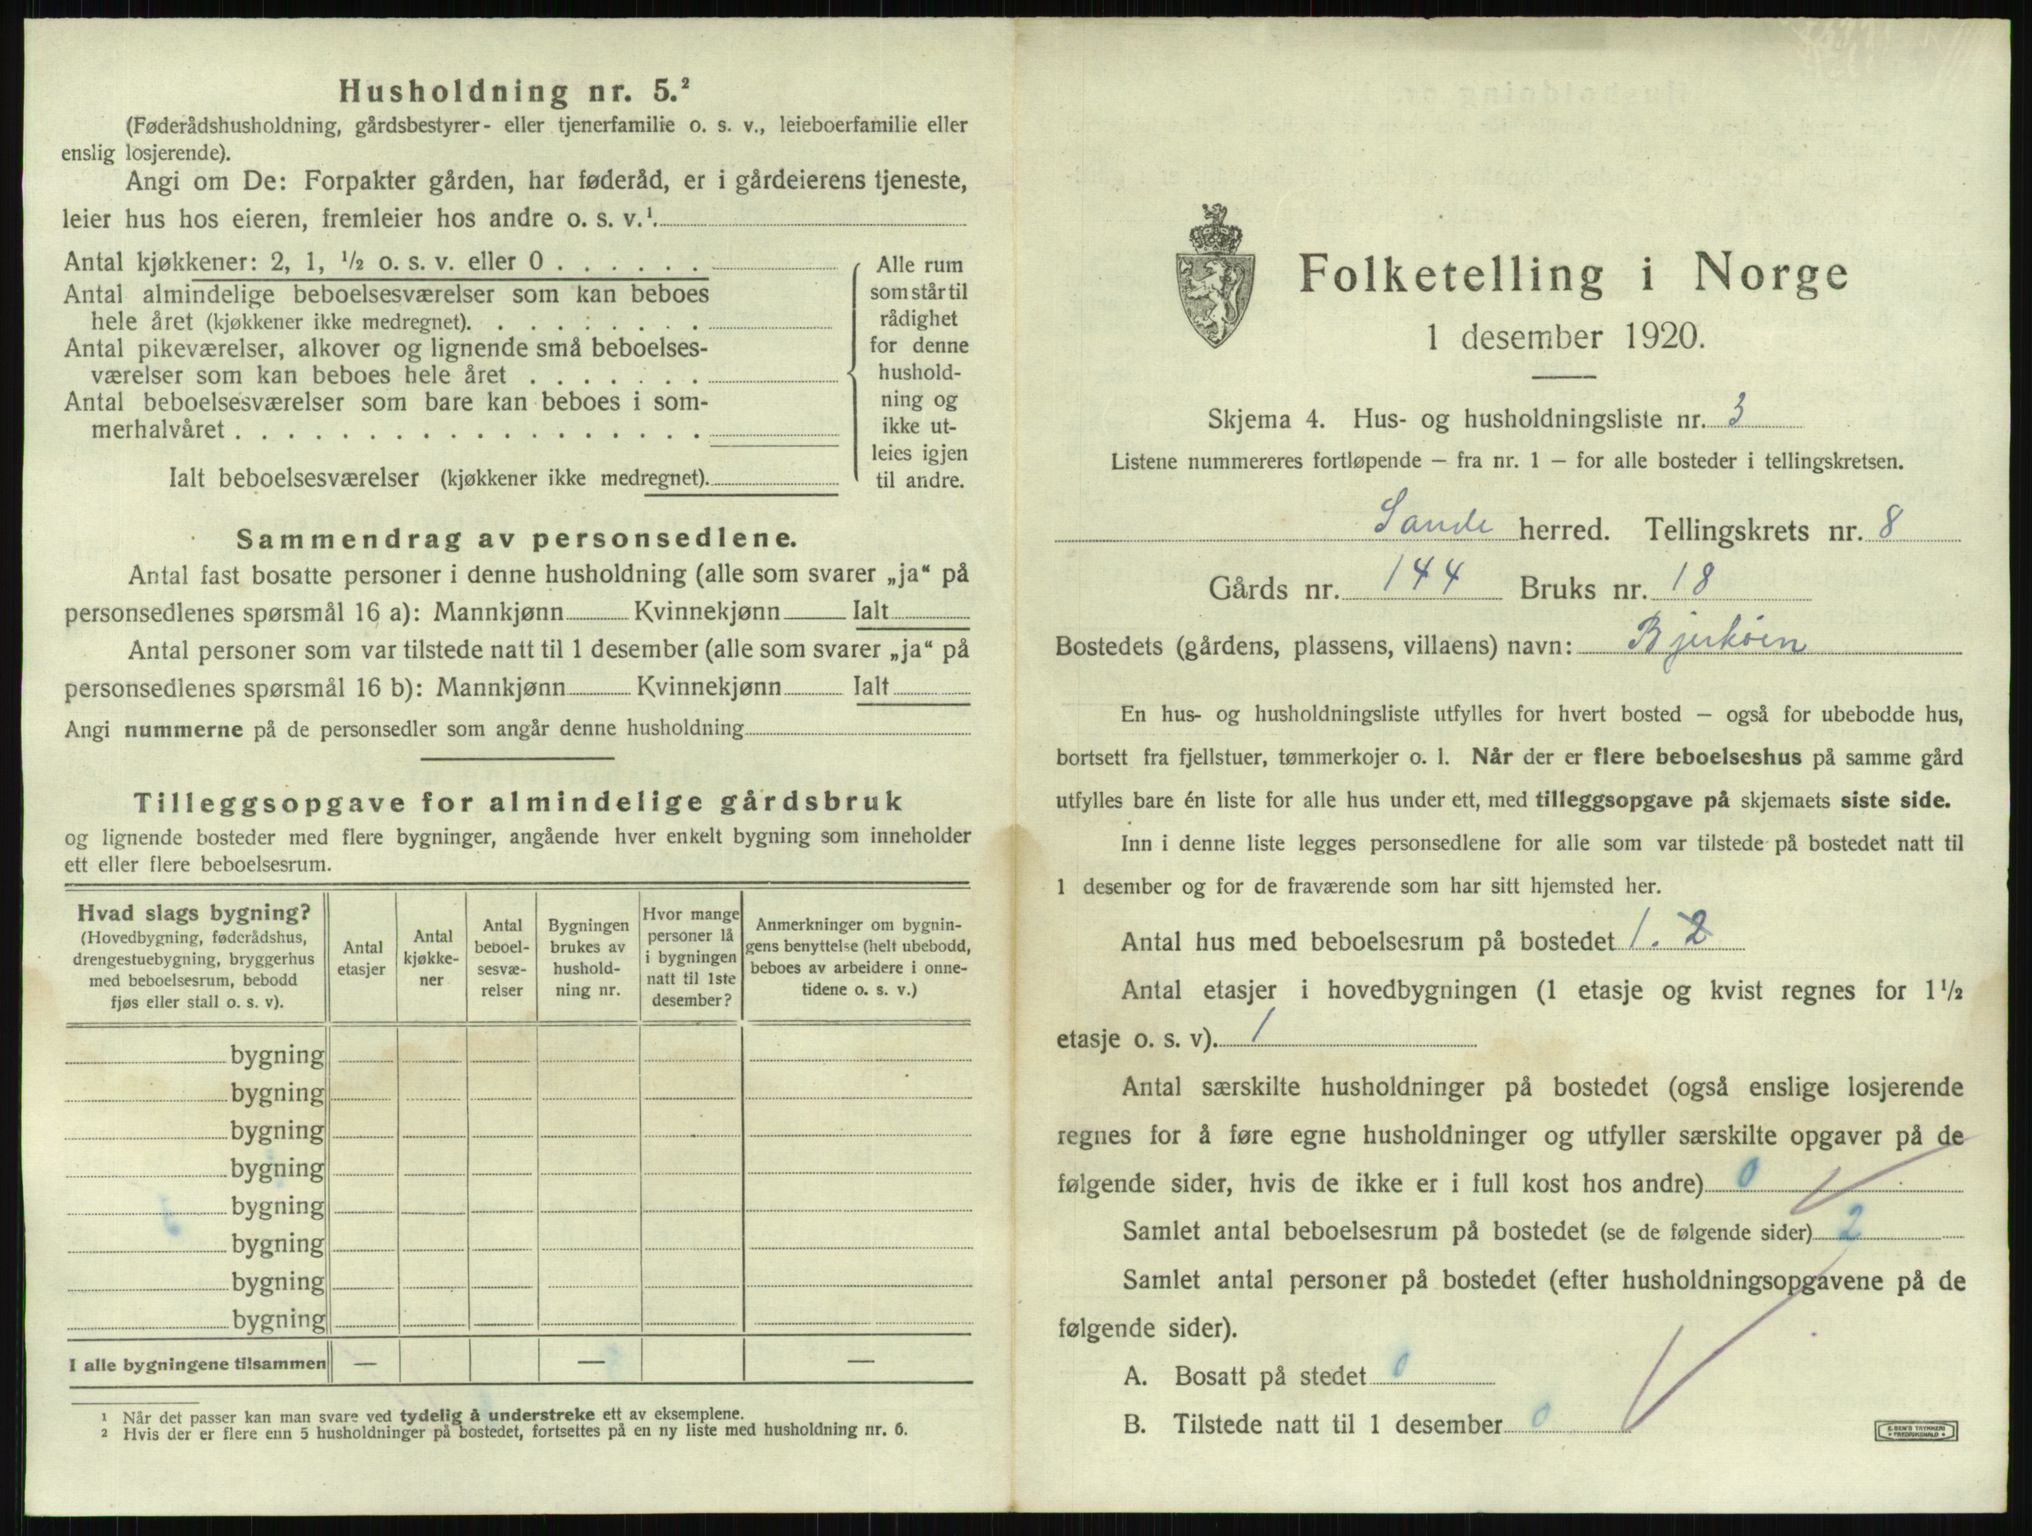 Husholdning nr. 5.²
(Føderådshusholdning, gårdsbestyrer- eller tjenerfamilie o. s. v., leieboerfamilie eller
enslig losjerende).
Angi om De: Forpakter gården, har føderåd, er i gårdeierens tjeneste,
leier hus hos eieren, fremleier hos andre o. s. v.¹
Antal kjøkkener: 2, 1, ½ o. s. v. eller 0 . . . . . .
Antal almindelige beboelsesværelser som kan beboes
hele året (kjøkkener ikke medregnet). . . . . . . . .
Antal pikeværelser, alkover og lignende små beboelses-
værelser som kan beboes hele året . . . . . . .
Antal beboelsesværelser som bare kan beboes i som-
merhalvåret . . . . . . . . . . . . . . . . . .
Ialt beboelsesværelser (kjøkkener ikke medregnet).
Alle rum
som står til
rådighet
for denne
hushold-
ning og
ikke ut-
leies igjen
til andre.
Sammendrag av personsedlene.
Antal fast bosatte personer i denne husholdning (alle som svarer „ja“ på
personsedlenes spørsmål 16 a): Mannkjønn Kvinnekjønn Ialt
Antal personer som var tilstede natt til 1 desember (alle som svarer „ja“ på
personsedlenes spørsmål 16 b): Mannkjønn Kvinnekjønn Ialt
Angi nummerne på de personsedler som angår denne husholdning
Tilleggsopgave for almindelige gårdsbruk
og lignende bosteder med flere bygninger, angående hver enkelt bygning som inneholder
ett eller flere beboelsesrum.
Hvad slags bygning?
(Hovedbygning, føderådshus,
drengestuebygning, bryggerhus
med beboelsesrum, bebodd
fjøs eller stall o. s. v).
Antal
etasjer
Antal
kjøkke-
ner
Antal
beboel-
sesvæ-
relser
Bygningen
brukes av
hushold-
ning nr.
Hvor mange
personer lå
i bygningen
natt til 1ste
desember?
Anmerkninger om bygnin-
gens benyttelse (helt ubebodd,
beboes av arbeidere i onne-
tidene o. s. v.)
bygning
bygning
bygning
bygning
bygning
bygning
bygning
bygning
I alle bygningene tilsammen — — —
¹ Når det passer kan man svare ved tydelig å understreke ett av eksemplene.
² Hvis der er flere enn 5 husholdninger på bostedet, fortsettes på en ny liste med husholdning nr. 6.
Folketelling i Norge
1 desember 1920.
Skjema 4. Hus- og husholdningsliste nr. 3
Listene nummereres fortløpende – fra nr. 1 – for alle bosteder i tellingskretsen.
Sande herred. Tellingskrets nr. 8
Gårds nr. 144 Bruks nr. 18
Bostedets (gårdens, plassens, villaens) navn: Bjerköen
En hus- og husholdningsliste utfylles for hvert bosted – også for ubebodde hus,
bortsett fra fjellstuer, tømmerkojer o. l. Når der er flere beboelseshus på samme gård
utfylles bare én liste for alle hus under ett, med tilleggsopgave på skjemaets siste side.
Inn i denne liste legges personsedlene for alle som var tilstede på bostedet natt til
1 desember og for de fraværende som har sitt hjemsted her.
Antal hus med beboelsesrum på bostedet 1. 2
Antal etasjer i hovedbygningen (1 etasje og kvist regnes for 1½
etasje o. s. v). 1
Antal særskilte husholdninger på bostedet (også enslige losjerende
regnes for å føre egne husholdninger og utfyller særskilte opgaver på de
følgende sider, hvis de ikke er i full kost hos andre) 0
Samlet antal beboelsesrum på bostedet (se de følgende sider) 2
Samlet antal personer på bostedet (efter husholdningsopgavene på de
følgende sider).
A. Bosatt på stedet 0
B. Tilstede natt til 1 desember 0